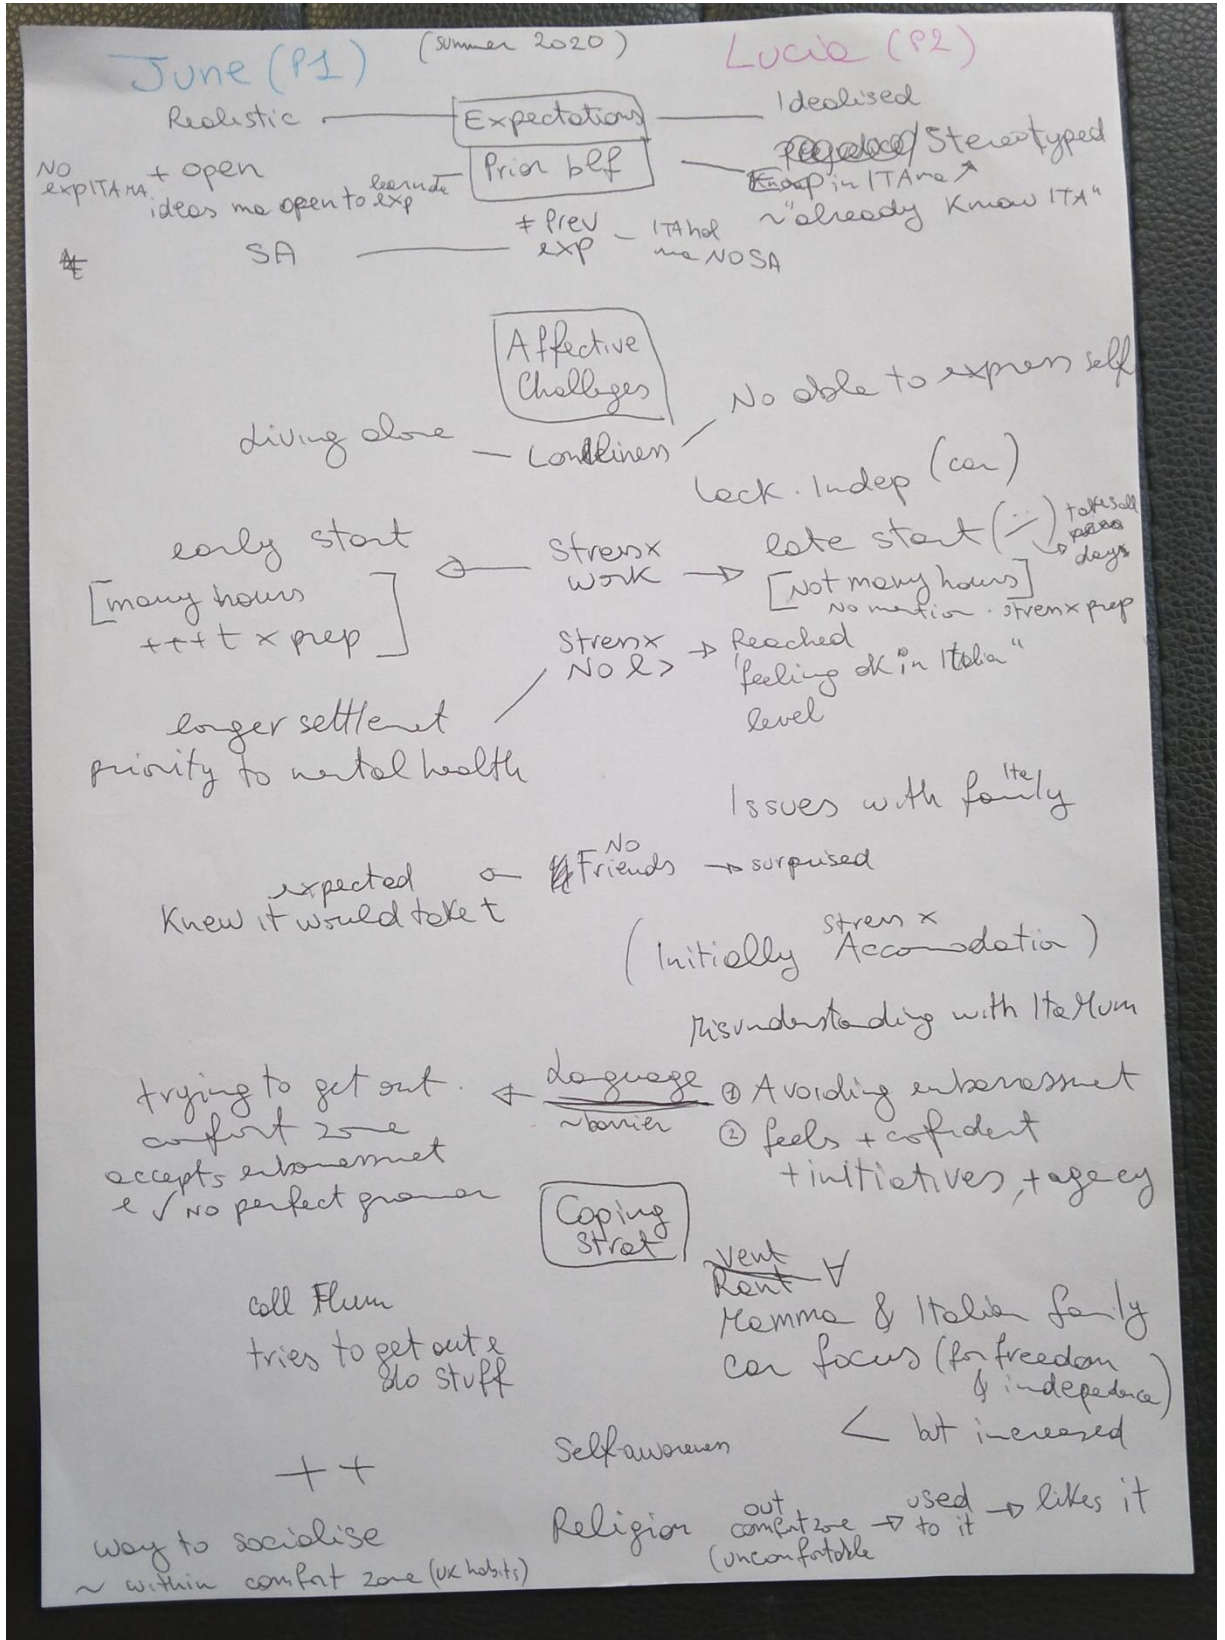 (summer 2020)
June (P1)
Lucia (P2)
Realistic
Expectations
Idealised
Prior blf
/Stereotyped
NO
expITA ma
+ open
ideas ma open to
exp
exp in ITA ma
~"already know ITA"
SA
≠ Prev
exp
ITA hol
ma NO SA
Affective
Challeges
Living alone
Loneliness
No able to express self
Lack. Indep (car)
early start
Stress x
work
late start
days
[many hours
+++ t x prep]
[Not many hours]
No mention. stress x prep
Stress x
NO l>
Reached
"feeling ok in Italia"
level
longer settlemet
priority to mental health
Issues with Ita family
expected
Knew it would take t
No
Friends
surprised
(Initially stress x Accomodation)
Misunderstanding with Ita Mum
trying to get out.
comfort zone
accepts embarassmet
e √ NO perfect grammar
Language
~barrier
① Avoiding embarassmet
② feels + cofident
+ initiatives, + agecy
Coping
Strat
Vent
Rant ∀
call Mum
tries to get out &
do stuff
Mamma & Italian family
car focus (for freedom
& indepedence)
++
Self-awareness
< but increased
way to socialise
~ within comfort zone (UK habits)
Religion
out
comfort zone
(uncomfortable
used
to it
likes it